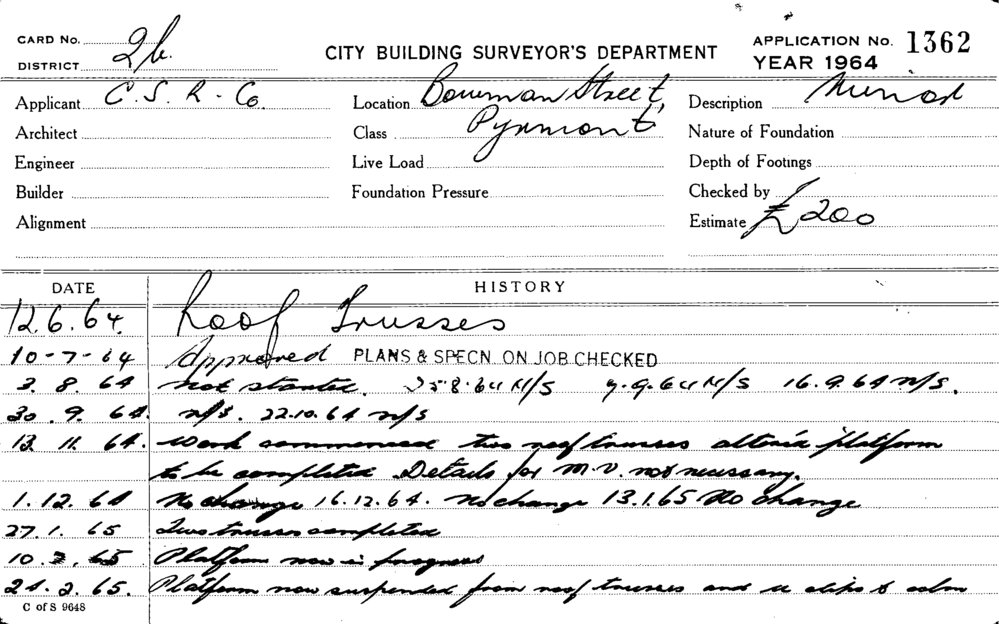 CARD No. 2b. CITY BUILDING SURVEYOR'S DEPARTMENT APPLICATION No. 1362
DISTRICT YEAR 1964
Applicant C. S. R. Co. Location Bowman Street, Description Minor
Architect Class Pyrmont Nature of Foundation
Engineer Live Load Depth of Footings
Builder Foundation Pressure Checked by
Alignment Estimate £200
DATE HISTORY
12.6.64. Roof Trusses
10-7-64 Approved PLANS & SPECN. ON JOB CHECKED
3. 8. 64 Not started. 25.8.64 N/S 9.9.64 N/S 16.9.64 N/S.
30. 9. 64. N/S. 22.10.64 N/S
13 11. 64. Work commenced two roof trusses platform
to be completed Details for M.V. not necessary.
1. 12. 64 No change 16.12.64. No change 13.1.65 No change
27. 1. 65 Two trusses completed
10. 2. 65 Platform now in progress
24. 2. 65. Platform now suspended from roof trusses and
C of S 9648